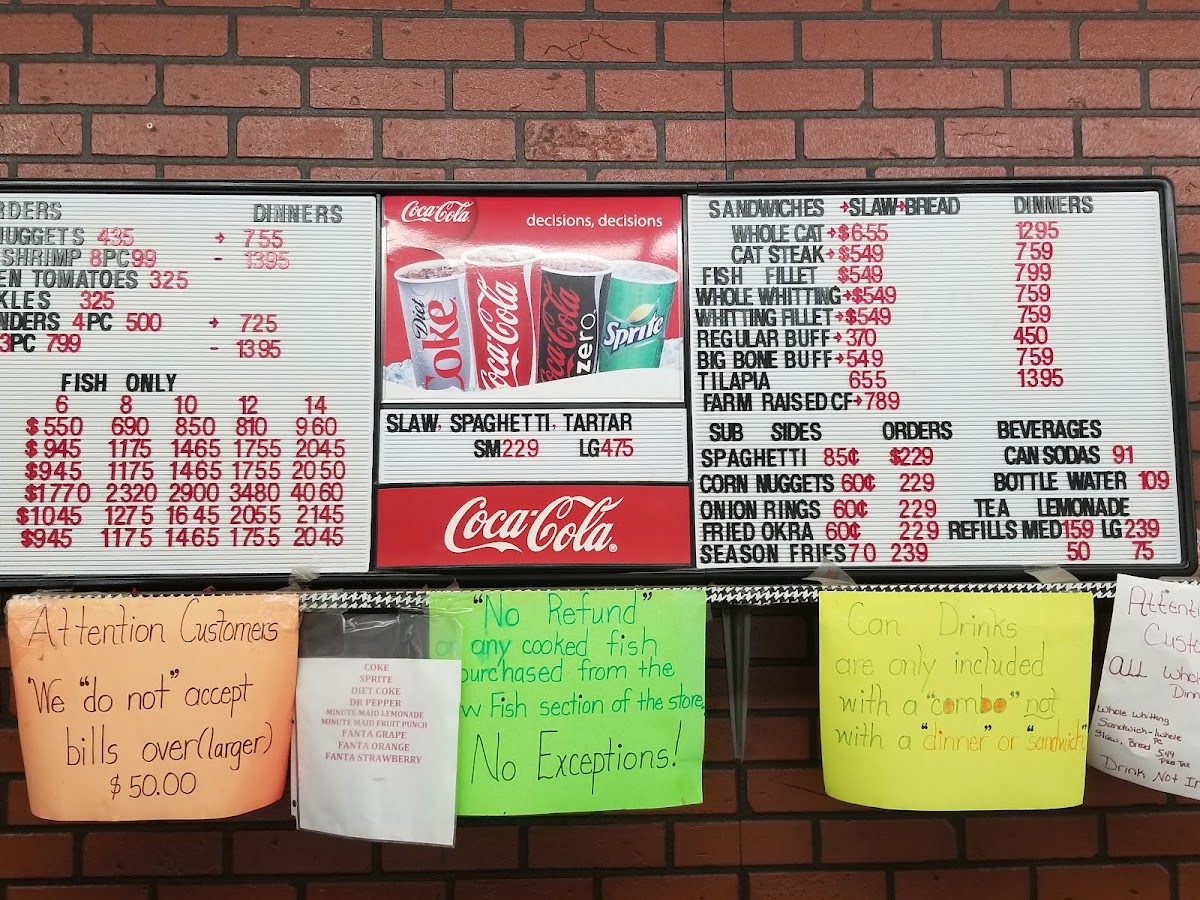 ORDERS DINNERS
NUGGETS 435 → 755
SHRIMP 8PC99 - 1395
EN TOMATOES 325
KLES 325
NDERS 4PC 500 → 725
3PC 799 - 1395
FISH ONLY
6 8 10 12 14
$550 690 850 810 960
$945 1175 1465 1755 2045
$945 1175 1465 1755 2050
$1770 2320 2900 3480 4060
$1045 1275 1645 2055 2145
$945 1175 1465 1755 2045
Coca-Cola
decisions, decisions
Diet Coke
Coca-Cola
Coca-Cola zero
Sprite
SLAW, SPAGHETTI, TARTAR
SM229 LG475
Coca-Cola®
SANDWICHES →SLAW→BREAD DINNERS
WHOLE CAT→$6-55 1295
CAT STEAK→$549 759
FISH FILLET $549 799
WHOLE WHITTING→$549 759
WHITTING FILLET→$549 759
REGULAR BUFF→370 450
BIG BONE BUFF→549 759
TILAPIA 655 1395
FARM RAISED CF→789
SUB SIDES ORDERS
SPAGHETTI 85¢ $229
CORN NUGGETS 60¢ 229
ONION RINGS 60¢ 229
FRIED OKRA 60¢ 229
SEASON FRIES 70 239
BEVERAGES
CAN SODAS 91
BOTTLE WATER 109
TEA LEMONADE
REFILLS MED159 LG239
50 75
Attention Customers
We "do not" accept
bills over(larger)
$50.00
COKE
SPRITE
DIET COKE
DR PEPPER
MINUTE MAID LEMONADE
MINUTE MAID FRUIT PUNCH
FANTA GRAPE
FANTA ORANGE
FANTA STRAWBERRY
"No Refund"
or any cooked fish
purchased from the
w Fish section of the store.
No Exceptions!
Can Drinks
are only included
with a "combo" not
with a "dinner" or "sandwich"
Attent
Custo
All Whol
Din
Whole Whitting
Sandwich-1whole
Slaw, Bread 5.49
Plus Tax
Drink Not In